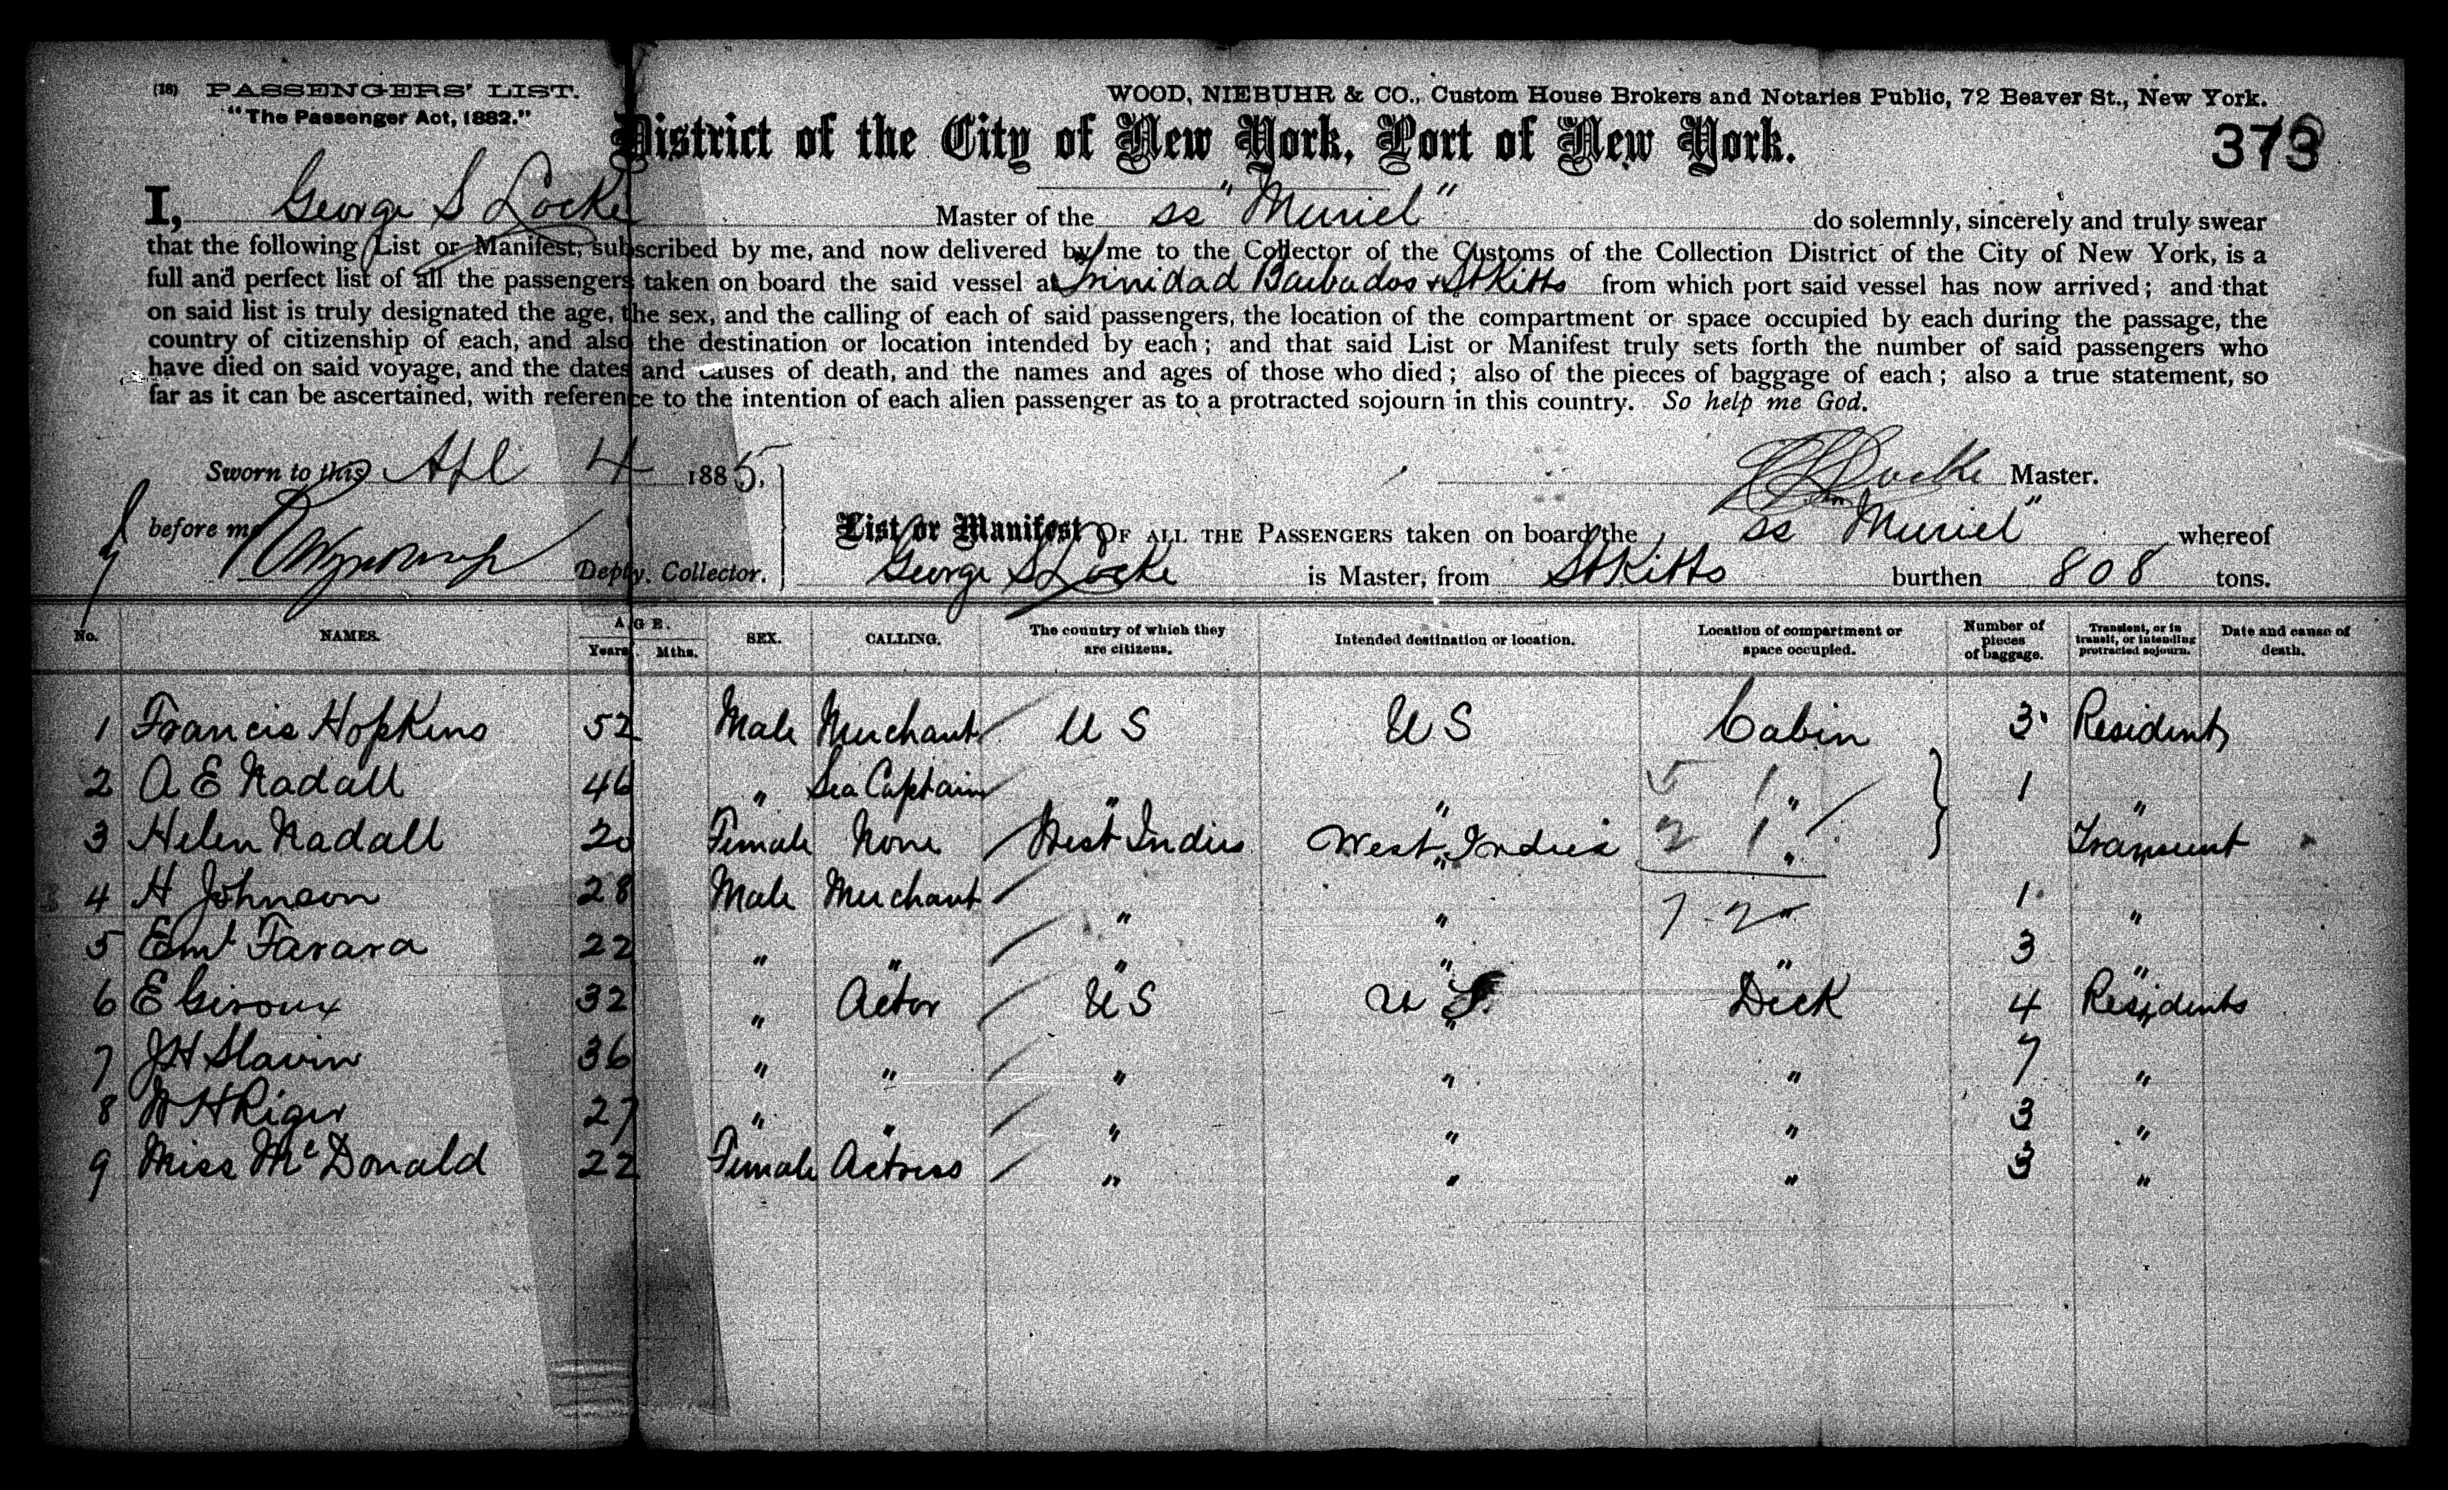 (18) PASSENGERS' LIST.
"The Passenger Act, 1882."
WOOD, NIEBUHR & CO., Custom House Brokers and Notaries Public, 72 Beaver St., New York.
District of the City of New York, Port of New York.
373
I, George S Locke Master of the ss "Muriel" do solemnly, sincerely and truly swear
that the following List or Manifest, subscribed by me, and now delivered by me to the Collector of the Customs of the Collection District of the City of New York, is a
full and perfect list of all the passengers taken on board the said vessel at Trinidad Barbados & St Kitts from which port said vessel has now arrived; and that
on said list is truly designated the age, the sex, and the calling of each of said passengers, the location of the compartment or space occupied by each during the passage, the
country of citizenship of each, and also the destination or location intended by each; and that said List or Manifest truly sets forth the number of said passengers who
have died on said voyage, and the dates and causes of death, and the names and ages of those who died; also of the pieces of baggage of each; also a true statement, so
far as it can be ascertained, with reference to the intention of each alien passenger as to a protracted sojourn in this country. So help me God.
Sworn to this Apl 4 1885,
Locke Master.
before me
Depty. Collector.
List or Manifest OF ALL THE PASSENGERS taken on board the ss "Muriel" whereof
George S Locke is Master, from St Kitts burthen 808 tons.
No. NAMES. AGE. Years Mths. SEX. CALLING. The country of which they are citizens. Intended destination or location. Location of compartment or space occupied. Number of pieces of baggage. Transient, or in transit, or intending protracted sojourn. Date and cause of death.
1 Francis Hopkins 52 Male Merchant U S U S Cabin 3 Residents
2 A E Nadall 46 " Sea Captain " " " 1 "
3 Helen Nadall 20 Female None West Indies West Indies " Transient
4 H Johnson 28 Male Merchant " " " 1 "
5 Emt Farara 22 " " " " " 3 "
6 E Giroux 32 " Actor U S U S Deck 4 Residents
7 J H Slavin 36 " " " " " 7 "
8 W H Riger 27 " " " " " 3 "
9 Miss McDonald 22 Female Actress " " " 3 "